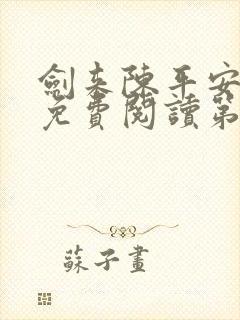 劍來陳平安
免費閱讀第
蘇子畫